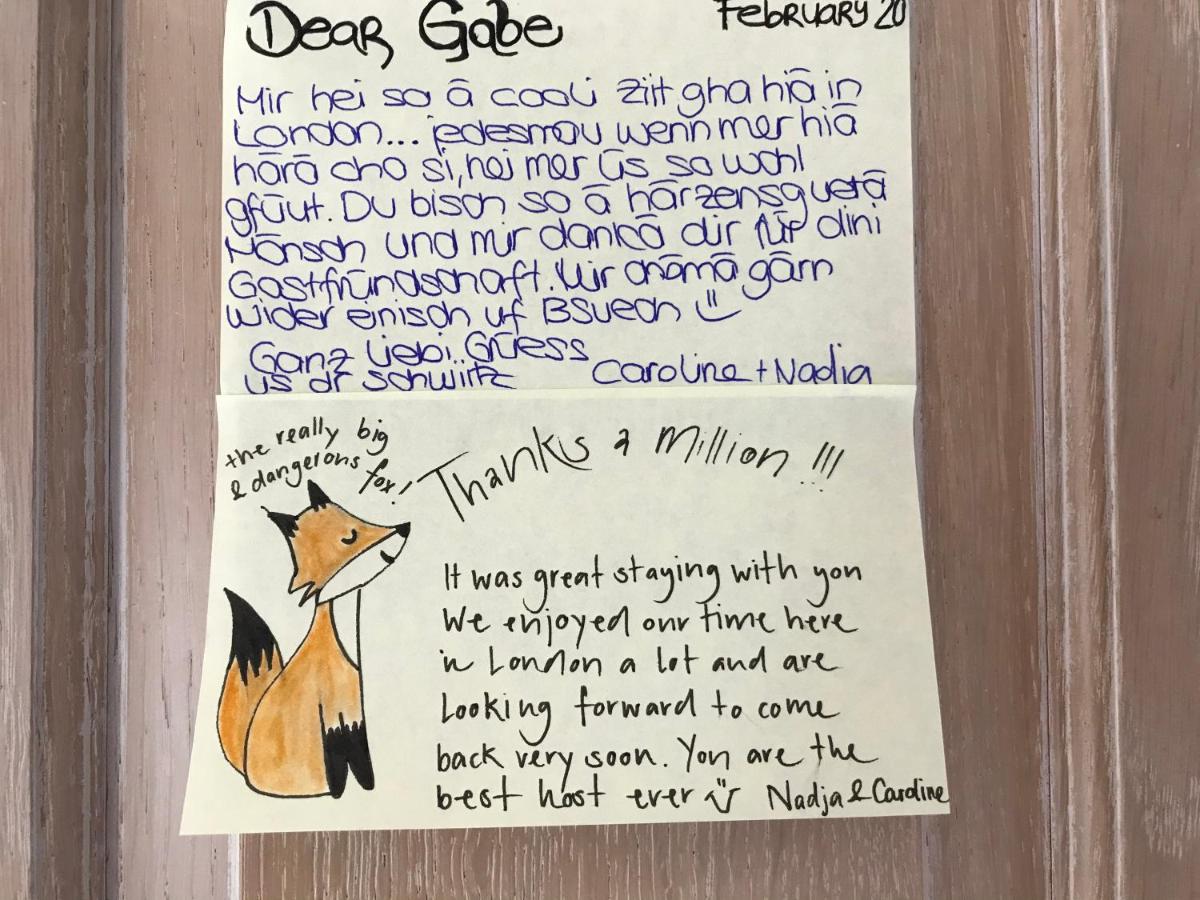 Dear Gabe
February 20
Mir hei so ā cooli Ziit gha hiā in
London... jedesmau wenn mer hiā
hārā cho si, hei mer ūs so wohl
gfūut. Du bisch so ā hārzensguetā
Mōnsch und mir dankā dir fūr dini
Gastfründschaft. Mir chōmā gārn
wider einisch uf Bsuech
Ganz liebi Grüess
us dr Schwiitz
Caroline + Nadja
the really big
& dangerous
fox!
Thanks a Million !!!
It was great staying with you
We enjoyed our time here
in London a lot and are
Looking forward to come
back very soon. You are the
best host ever Nadja & Caroline